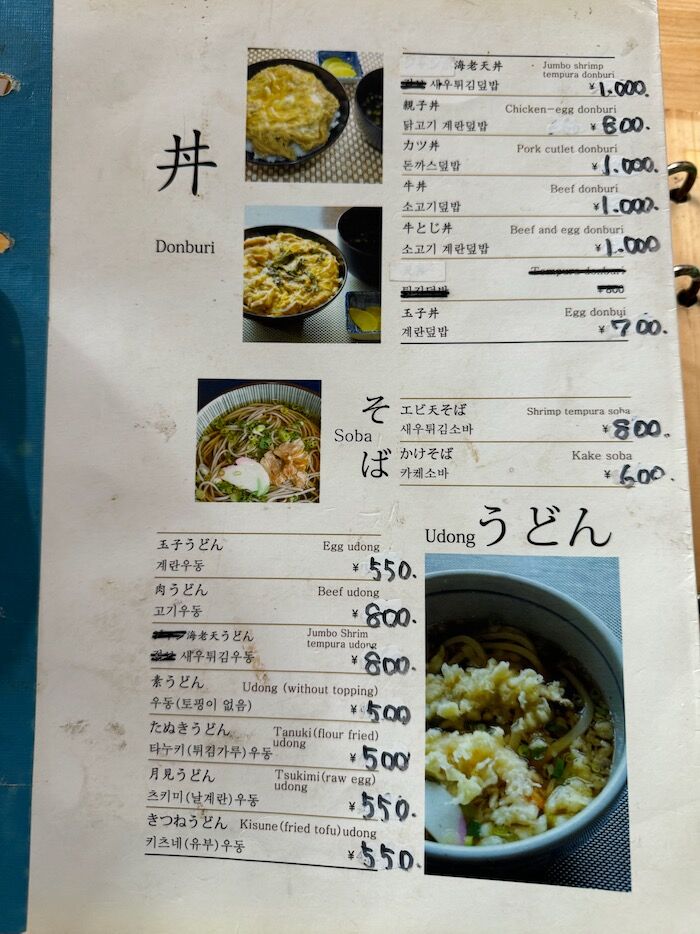 丼
Donburi
海老天丼 Jumbo shrimp
tempura donburi
새우튀김덮밥 ¥1.000.
親子丼 Chicken-egg donburi
닭고기 계란덮밥 ¥800.
カツ丼 Pork cutlet donburi
돈까스덮밥 ¥1.000.
牛丼 Beef donburi
소고기덮밥 ¥1.000.
牛とじ丼 Beef and egg donburi
소고기 계란덮밥 ¥1.000
Tempura donburi
튀김덮밥 ¥800
玉子丼 Egg donbui
계란덮밥 ¥700.
そば
Soba
エビ天そば Shrimp tempura soba
새우튀김소바 ¥800.
かけそば Kake soba
카케소바 ¥600.
Udong うどん
玉子うどん Egg udong
계란우동 ¥550.
肉うどん Beef udong
고기우동 ¥800.
海老天うどん Jumbo Shrim
tempura udong
새우튀김우동 ¥800.
素うどん Udong (without topping)
우동(토핑이 없음) ¥500
たぬきうどん Tanuki(flour fried)
udong
타누키(튀김가루)우동 ¥500
月見うどん Tsukimi(raw egg)
udong
츠키미(날계란)우동 ¥550.
きつねうどん Kisune(fried tofu)udong
키츠네(유부)우동 ¥550.